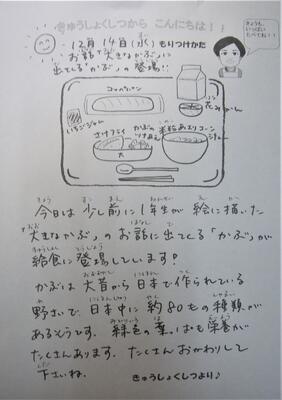 きゅうしょくしつから こんにちは！！
きょうも、
いっぱい
たべてね！！
12月14日(水) もりつけかた
お話「大きなかぶ」に
出てくる「かぶ」が登場!!
コッペパン
いちごジャム
花みかん
さけフライ
かぶの
米粉
大
今日は少し前に1年生が絵に描いた
「大きなかぶ」のお話に出てくる「かぶ」が
給食に登場しています！
かぶは大昔から日本で作られている
野さいで、日本中に約80もの種類が
あるそうです。緑色の葉っぱも栄養が
たくさんあります。たくさんおかわりして
下さいね。
きゅうしょくしつより♪